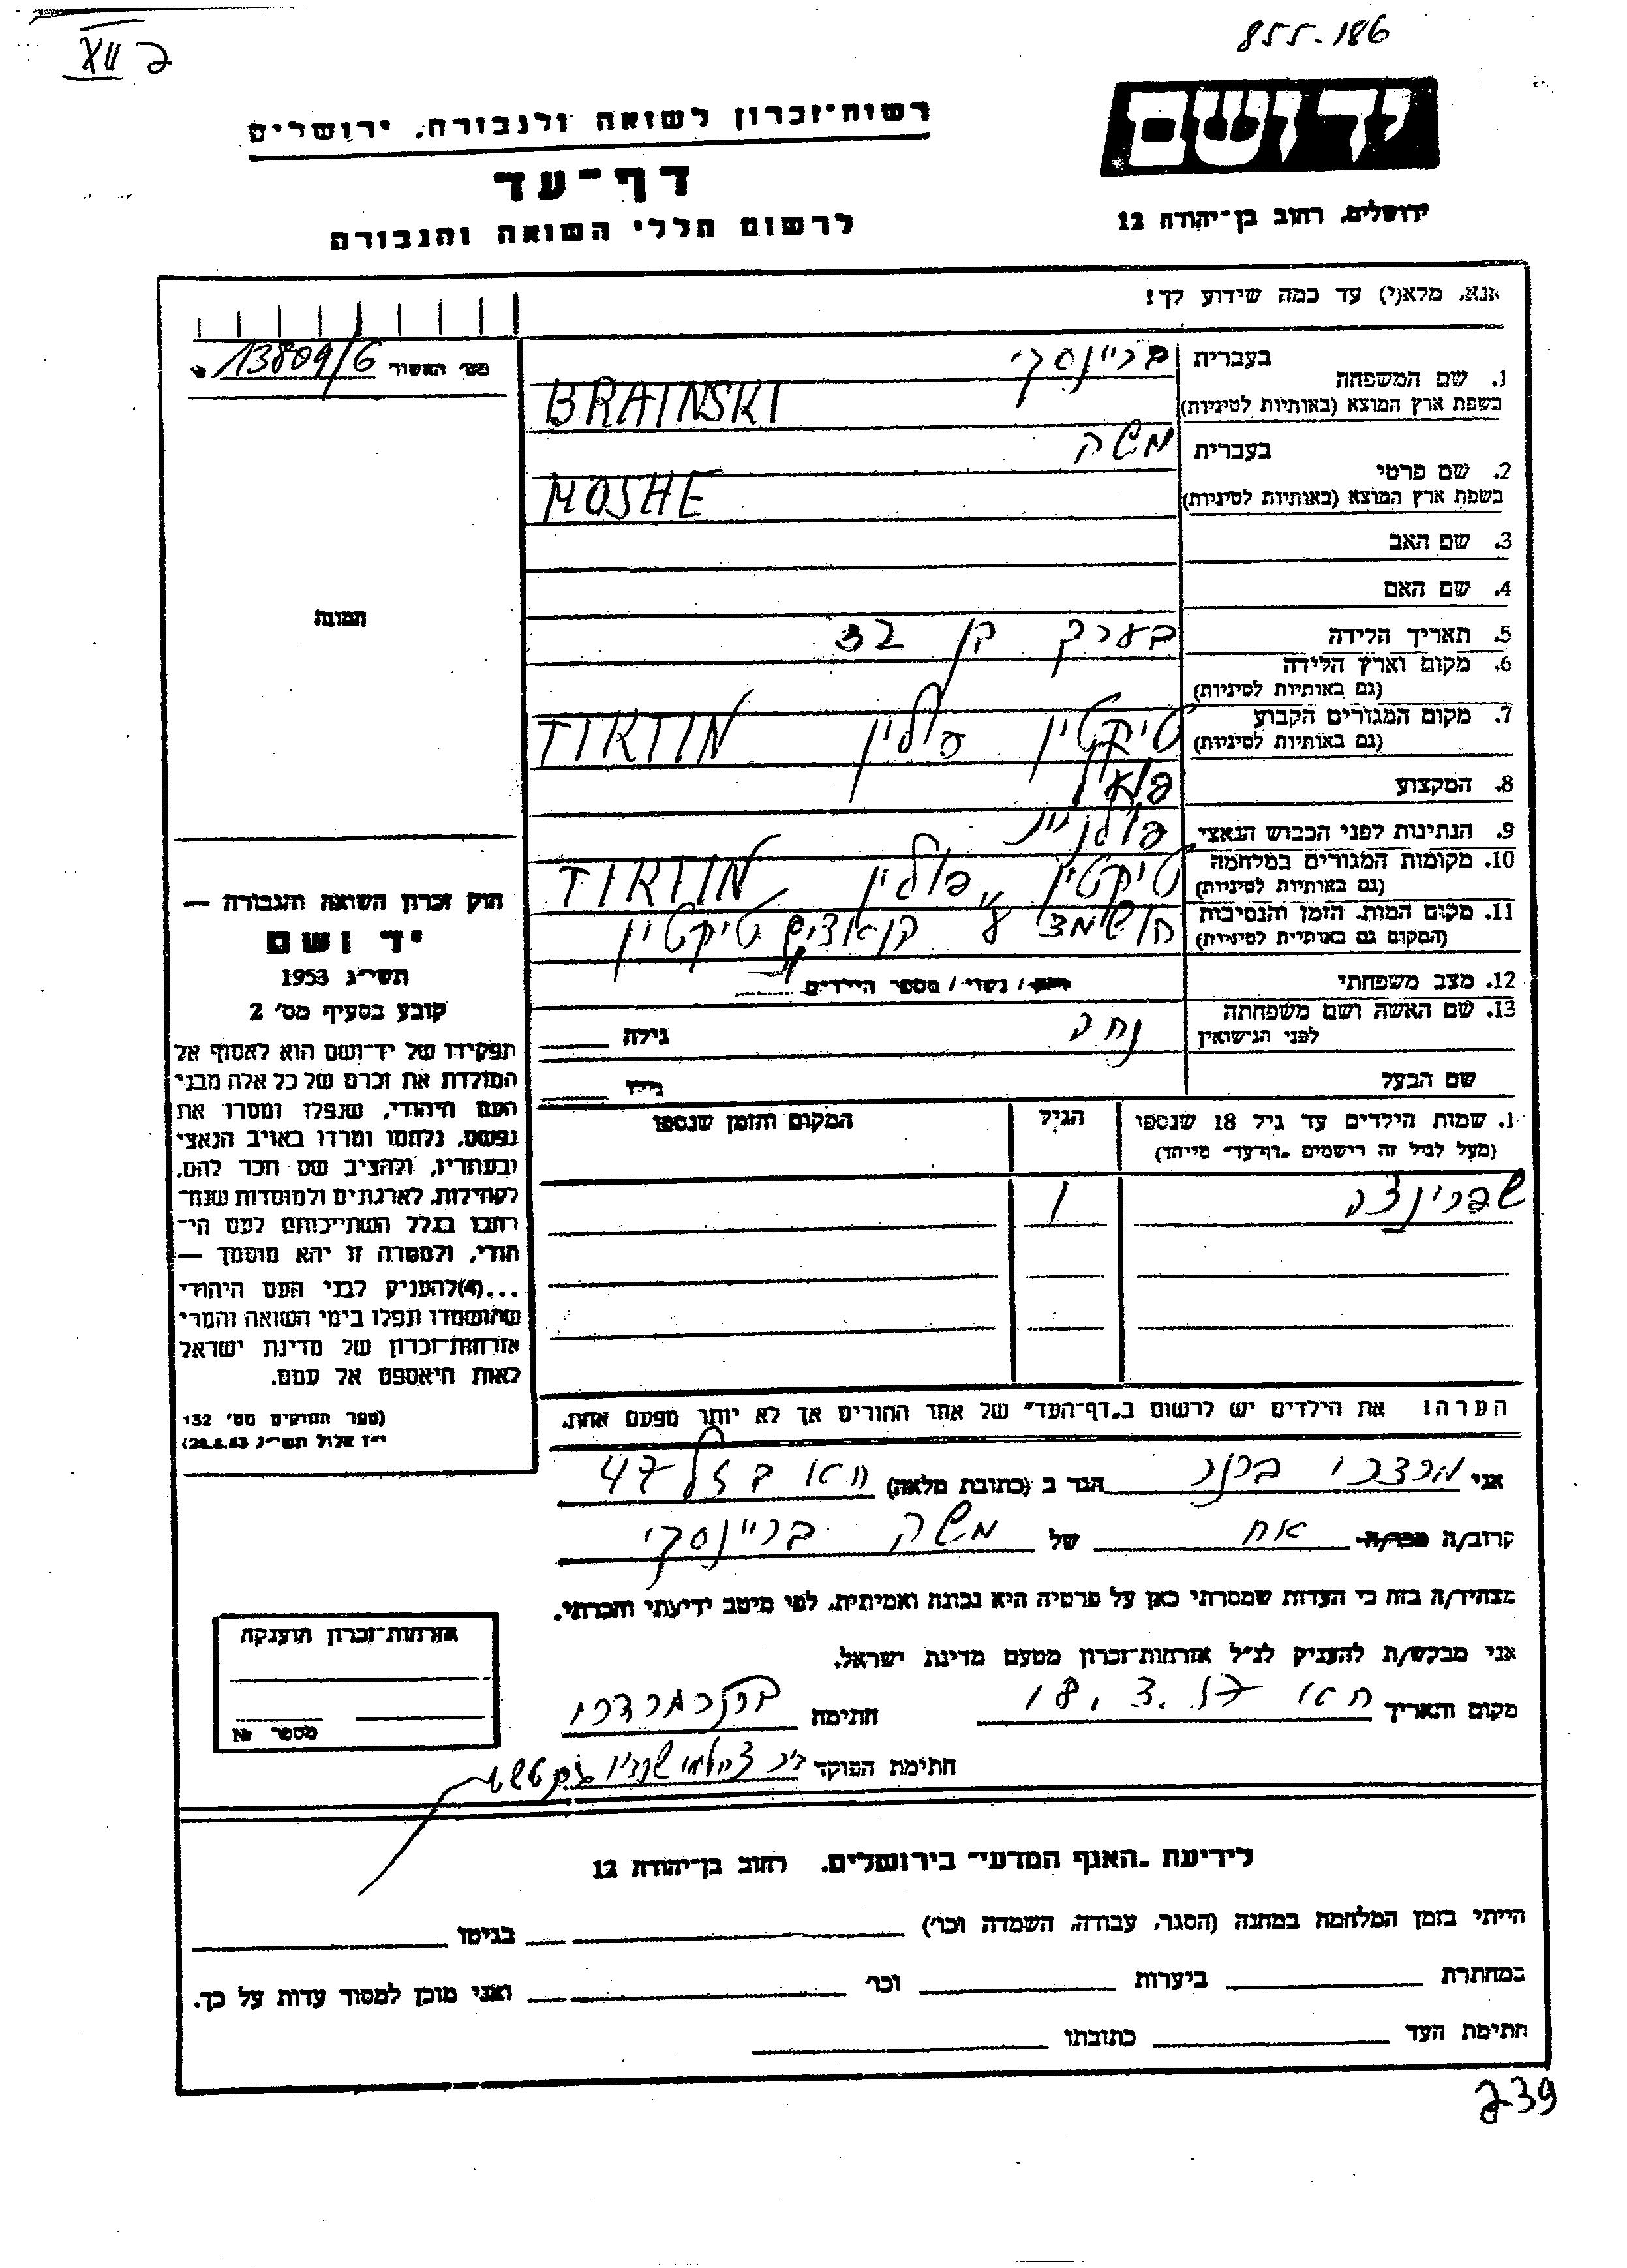 855-186
XII ב
יד ושם
רשות־זכרון לשואה ולגבורה, ירושלים
דף־עד
לרשום חללי השואה והגבורה
ירושלים, רחוב בן־יהודה 12
אנא, מלא(י) עד כמה שידוע לך!
מס׳ האשור 13809/6
1. שם המשפחה
בעברית
בריינסקי
בשפת ארץ המוצא (באותיות לטיניות)
BRAINSKI
2. שם פרטי
בעברית
משה
בשפת ארץ המוצא (באותיות לטיניות)
MOSHE
3. שם האב
4. שם האם
תמונה
5. תאריך הלידה
בערך בן 32
6. מקום וארץ הלידה
(גם באותיות לטיניות)
7. מקום המגורים הקבוע
(גם באותיות לטיניות)
טיקטין פולין TIKTIN
8. המקצוע
9. הנתינות לפני הכבוש הנאצי
פולנית
10. מקומות המגורים במלחמה
(גם באותיות לטיניות)
טיקטין פולין TIKTIN
11. מקום המות, הזמן והנסיבות
(המקום גם באותיות לטיניות)
טיקטין
12. מצב משפחתי
רווק / נשוי / מספר הילדים
13. שם האשה ושם משפחתה
לפני הנישואין
גילה
שם הבעל
גילו
חוק זכרון השואה והגבורה —
יד ושם
תשי״ג 1953
קובע בסעיף מס׳ 2
תפקידו של יד־ושם הוא לאסוף אל
המולדת את זכרם של כל אלה מבני
העם היהודי, שנפלו ומסרו את
נפשם, נלחמו ומרדו באויב הנאצי
ובעוזריו, ולהציב שם וזכר להם,
לקהילות, לארגונים ולמוסדות שנח־
רבו בגלל השתייכותם לעם הי־
הודי, ולמטרה זו יהא מוסמך —
...(4)להעניק לבני העם היהודי
שהושמדו ונפלו בימי השואה והמרי
אזרחות־זכרון של מדינת ישראל
לאות היאספם אל עמם.
(ספר החוקים מס׳ 132
י״ז אלול תשי״ג 28.8.53)
1. שמות הילדים עד גיל 18 שנספו
(מעל לגיל זה רישמים „דף־עד״ מיוחד)
הגיל
המקום והזמן שנספו
שפרינצה
1
הערה! את הילדים יש לרשום ב„דף־העד״ של אחד ההורים אך לא יותר מפעם אחת.
אני מרדכי
הגר ב (כתובת מלאה) 47
קרוב/ה מכר/ה אח של משה בריינסקי
מצהיר/ה בזה כי העדות שמסרתי כאן על פרטיה היא נכונה ואמיתית, לפי מיטב ידיעתי והכרתי.
אני מבקש/ת להעניק לנ״ל אזרחות־זכרון מטעם מדינת ישראל.
מקום ותאריך
חתימה
חתימת הפוקד
אזרחות־זכרון הוענקה
מספר №
לידיעת „האגף המדעי״ בירושלים, רחוב בן־יהודה 12
הייתי בזמן המלחמה במחנה (הסגר, עבודה, השמדה וכו׳) בגיטו
במחתרת ביערות וכו׳ ואני מוכן למסור עדות על כך.
חתימת העד כתובתו
239